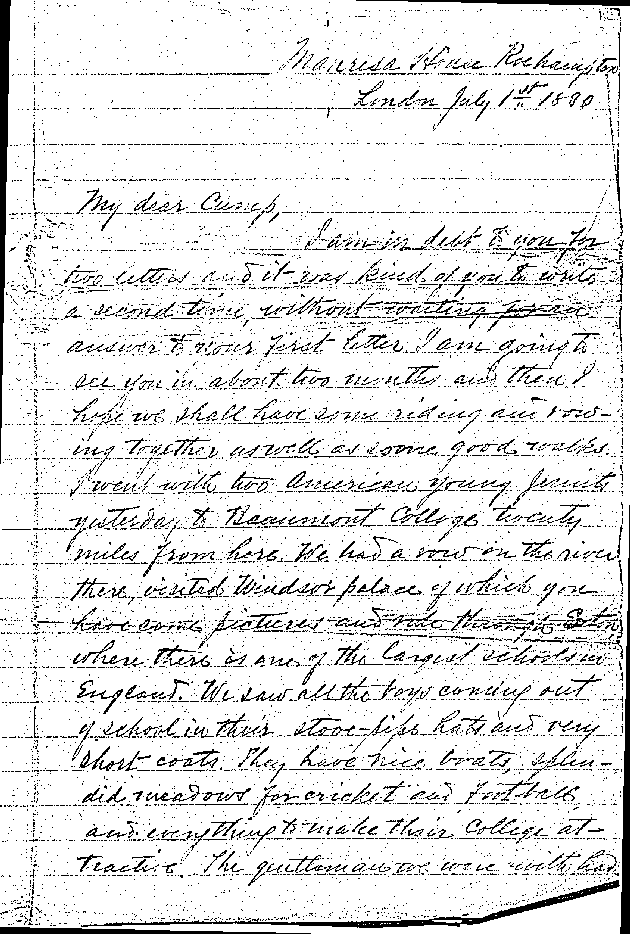 Manresa House Roehampton
London July 1st 1890
My dear Camp,
I am in debt to you for
two letters and it was kind of you to write
a second time, without waiting for an
answer to your first letter. I am going to
see you in about two months and then I
hope we shall have some riding and row-
ing together as well as some good walks.
I went with two American young Jesuits
yesterday to Beaumont College twenty
miles from here. We had a row on the river
there, visited Windsor palace of which you
have some pictures and rode through Eton
where there is one of the largest schools in
England. We saw all the boys coming out
of school in their stove-pipe hats and very
short coats. They have nice boats, splen-
did meadows for cricket and football,
and everything to make their College at-
tractive. The gentleman we were with had